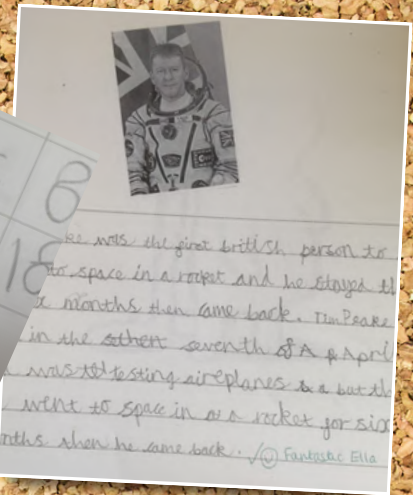 8
18
ke was the first british person to
to space in a rocket and he stayed th
x months then came back. Tim Peake
in the seventh of April
was testing aireplanes but th
went to space in a rocket for six
nths then he came back. Fantastic Ella